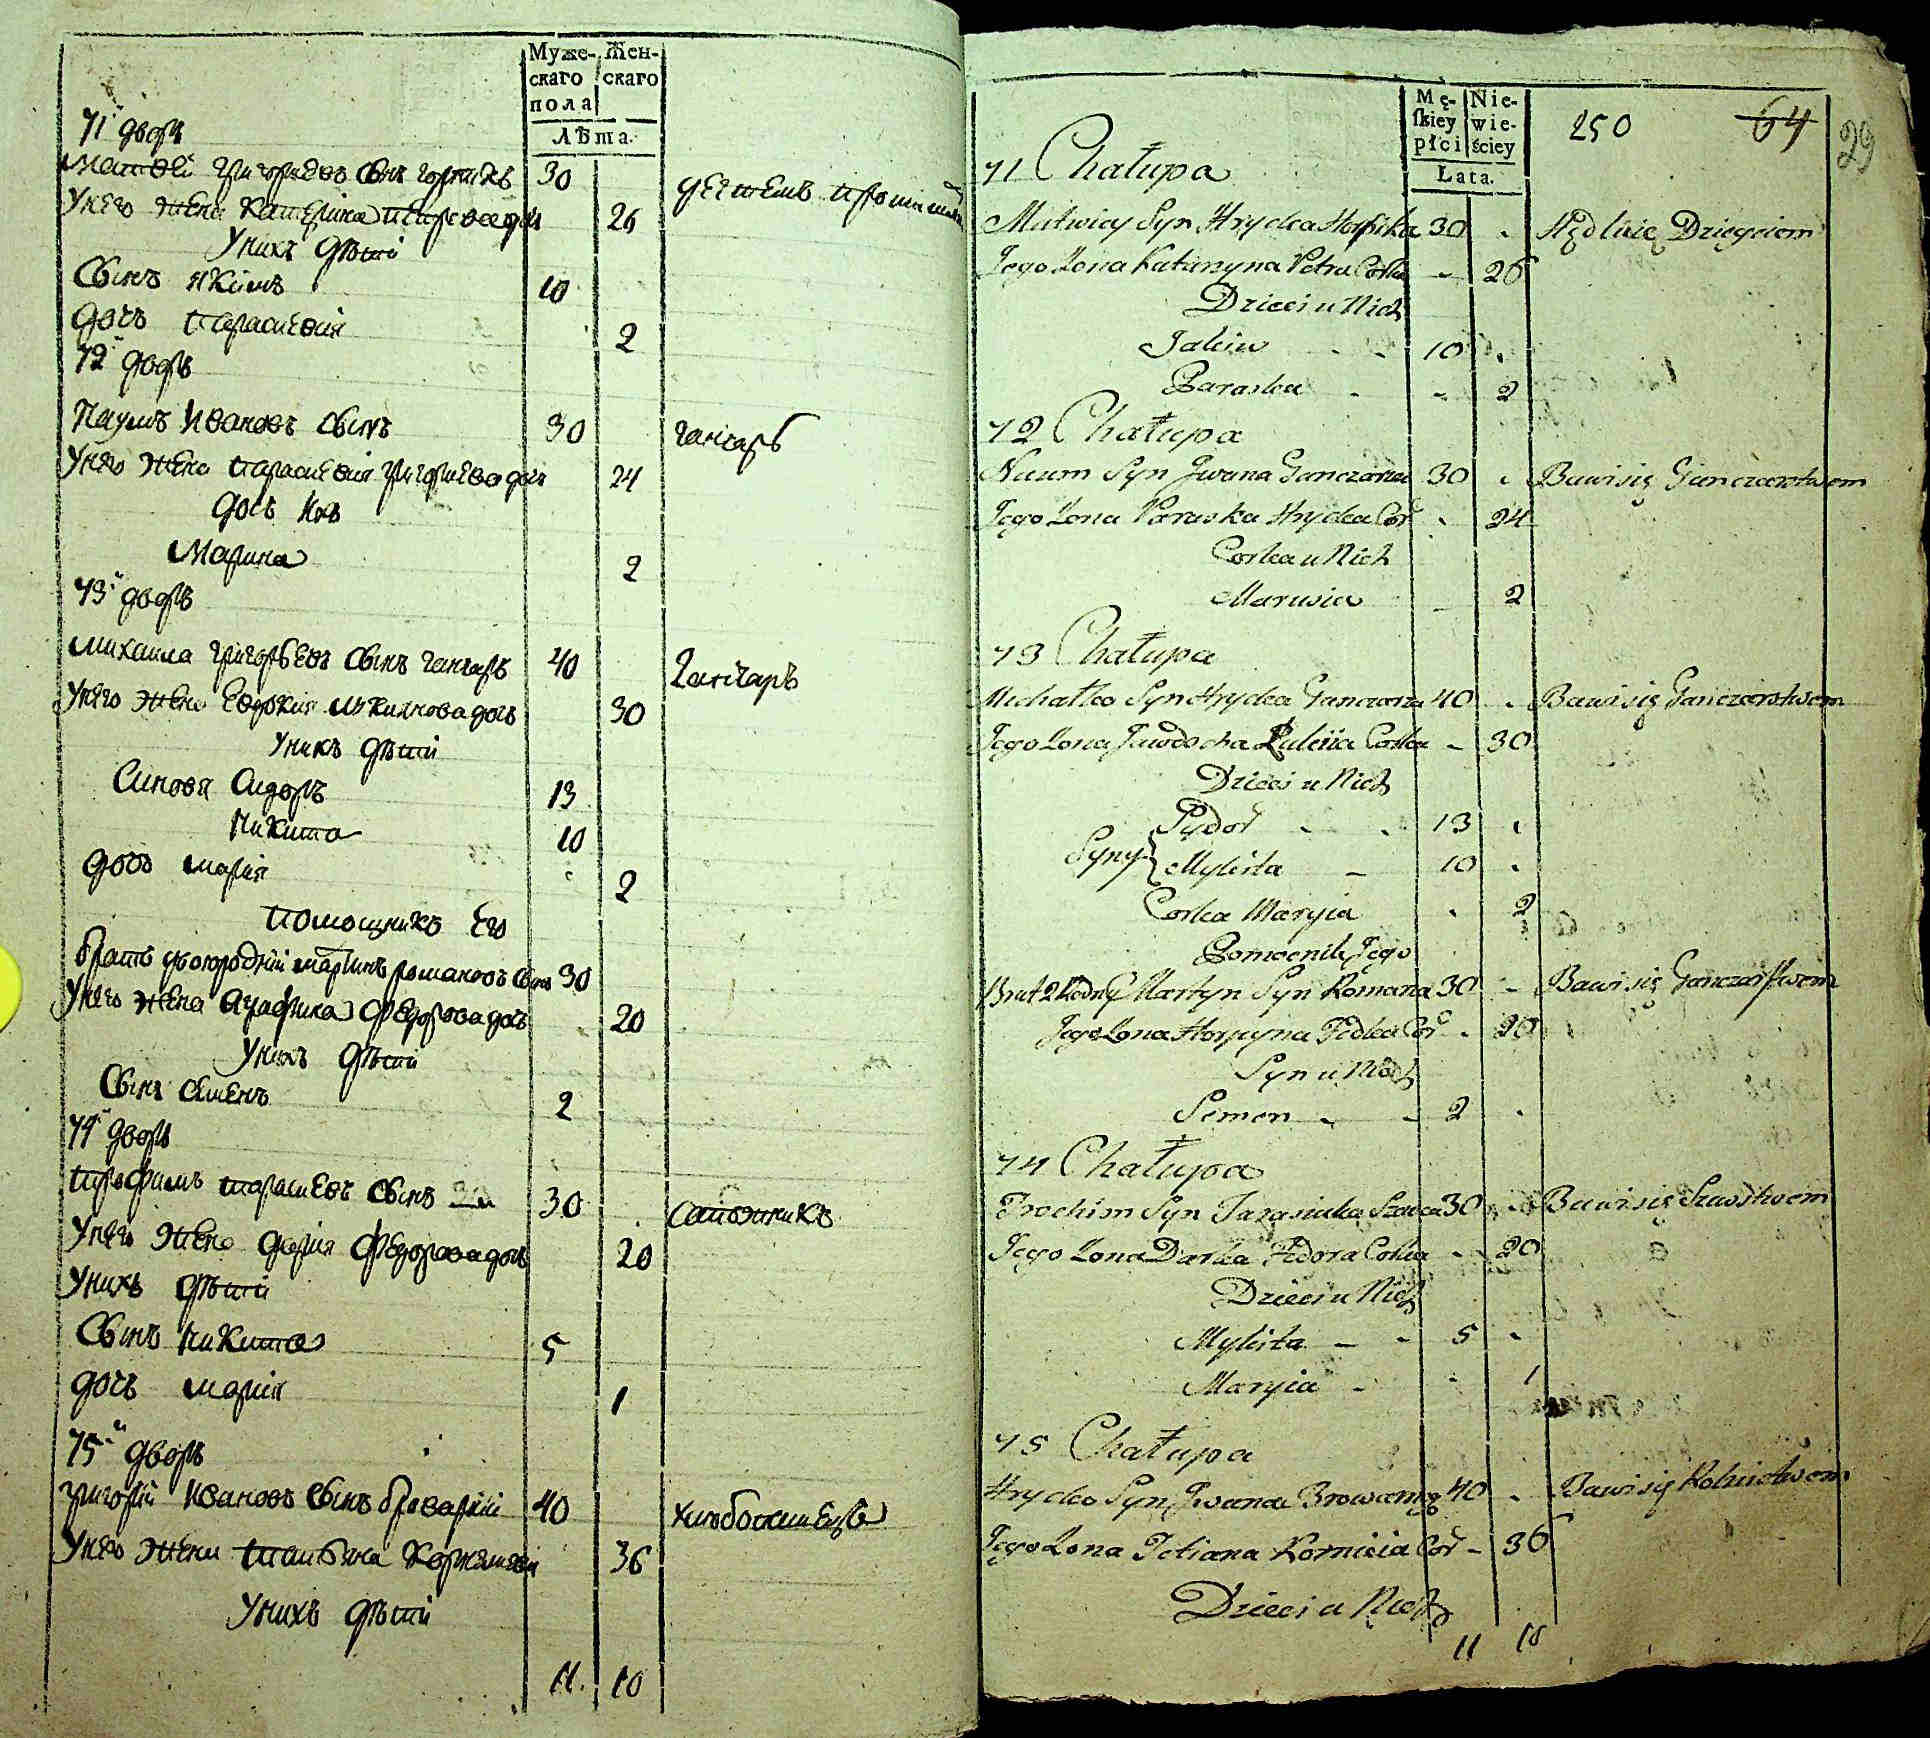 Муже-
скаго
пола
Жен-
скаго
Лѣта.
71й дворъ
Матвѣй Григорьевъ сынъ 30
Унего жена Катерина Петрова дочь 26
Унихъ дѣти
Сынъ Якимъ 10
дочь Парасковия 2
72й дворъ
Наумъ Ивановъ сынъ 30 ганчаръ
Унего жена Парасковия Григорьева дочь 24
дочь ихъ
Марина 2
73й дворъ
Михаила Григорьевъ сынъ ганчаръ 40 Ганчаръ
Унего жена Евдокия дочь 30
Унихъ дѣти
Синовя Сидоръ 13
Никита 10
дочь Мария 2
Помощникъ Его
братъ двоюродній Мартинъ Романовъ сынъ 30
Унего жена Агафика Федорова дочь 20
Унихъ дѣти
Сынъ Семенъ 2
74й дворъ
Трофимъ Тарасиевъ сынъ 30 Сапожникъ
Унего жена Дария Федорова дочь 20
Унихъ дѣти
Сынъ Никита 5
дочь Мария 1
75й дворъ
Григорий Ивановъ сынъ броварній 40 хлѣбопашецъ
Унего жена Татьяна 36
Унихъ дѣти
11. 10
Mę-
skiey
płci
Nie-
wie-
ściey
Lata.
250 64 29
71 Chałupa
Matwiey Syn Hrycka 30 Dziegciem
Jego Zona Katarzyna Petra Corka - 26
Dzieci u Nich
Jakim - - 10
Paraska - - 2
72 Chałupa
Naum Syn Jwana Ganczara 30 Bawi się Ganczarstwem
Jego Zona Paraska Hrycka Cor 24
Corka u Nich
Marusia - 2
73 Chałupa
Michałko Syn Hrycka Ganczara 40 Bawi się Ganczarstwem
Jego Zona Jawdocha Corka - 30
Dzieci u Nich
Sydor - - 13
Syny { Mykita - 10
Corka Maryia 2
Pomocnik Jego
Brat 2 Rodny Martyn Syn Romana 30 - Bawi się Ganczarstwem
Jego Zona Horpyna Fedka Cor - 20
Syn u Nich
Semen - - 2
74 Chałupa
Trochim Syn Tarasiuka Szewca 30 Bawi się Szewstwem
Jego Zona Darka Fedora Corka - 20
Dzieci u Nich
Mykita - - 5
Maryia - - 1
75 Chałupa
Hrycko Syn Jwana Browarny 40 Bawi się Rolnictwem
Jego Zona Tetiana Kornieia Cor - 36
Dzieci u Nich
11 10